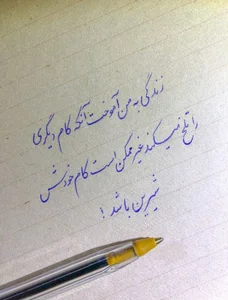 زندگی به من آموخت آنکه کام دیگری
را تلخ میکند غیر ممکن است کام خودش
شیرین باشد !